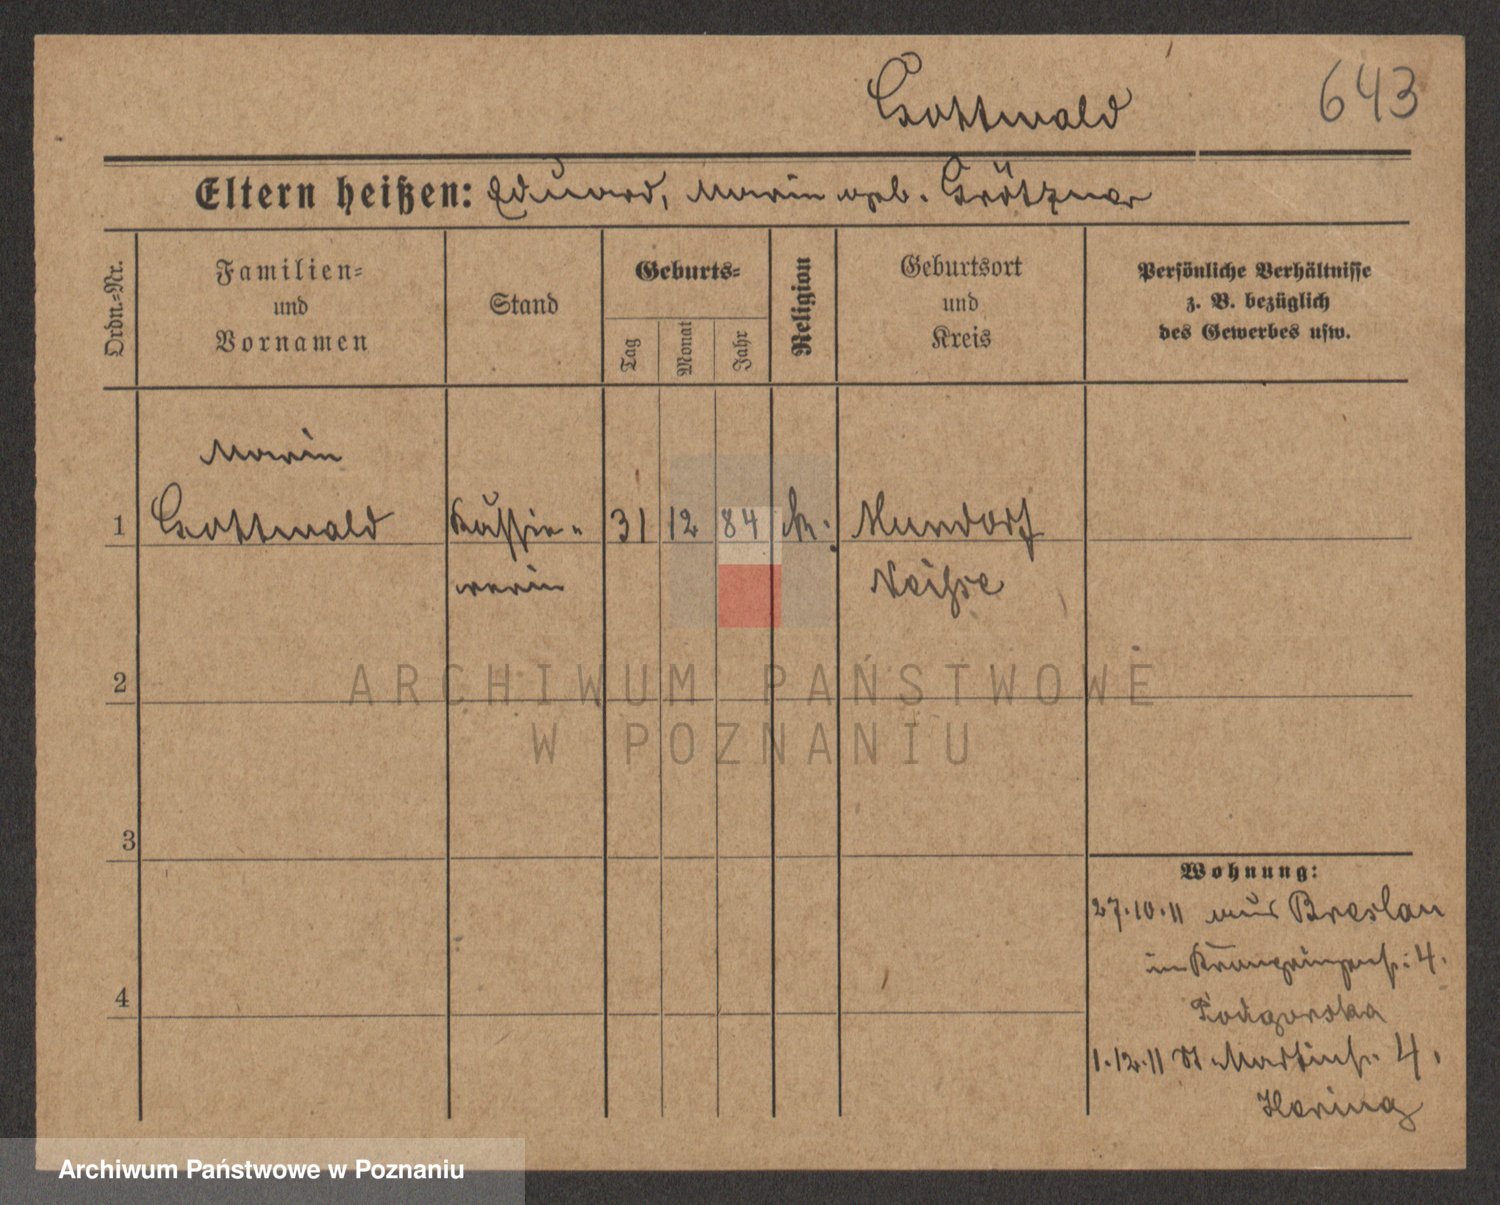 Gottwald
643
Eltern heißen: Eduard, Marie geb. Grötzner
Ordn.-Nr.
Familien-
und
Vornamen
Stand
Geburts-
Tag
Monat
Jahr
Religion
Geburtsort
und
Kreis
Persönliche Verhältnisse
z. B. bezüglich
des Gewerbes usw.
Marie
1 Gottwald Kassie- 31 12 84 Mundorf
rerin Neisse
2
3
4
Wohnung:
27.10.11 aus Breslau
in Kronprinzenst. 4.
Podgorska
1.12.11 St Martinst. 4.
Hering
ARCHIWUM PAŃSTWOWE
W POZNANIU
Archiwum Państwowe w Poznaniu